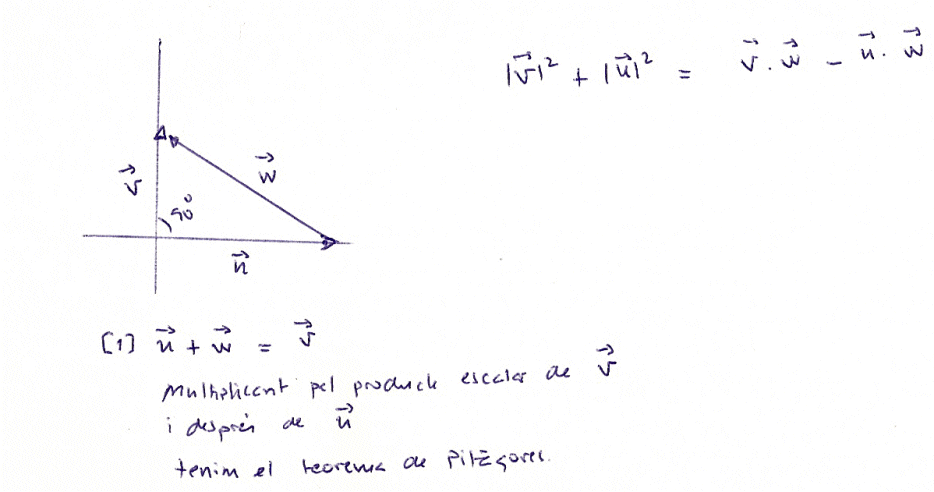 |v⃗|² + |u⃗|² = v⃗ . w⃗ - u⃗ . w⃗
v⃗
w⃗
90°
u⃗
[1] u⃗ + w⃗ = v⃗
Multiplicant pel producte escalar de v⃗
i després de u⃗
tenim el teorema de Pitàgores.